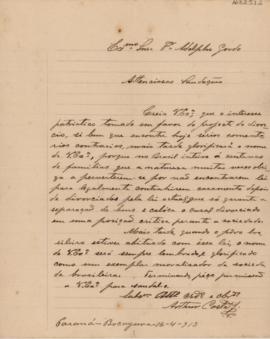 Exmo Snr. Dr. Adolpho Gordo
Attenciosas Saudações
Creia V.Exª. que o interesse
patriotico tomado em favor do projecto do divor-
cio, si bem que encontre hoje serios comenta-
rios contrarios, mais tarde glorificará o nome
de V.Exª, porque no Brasil inteiro á centenas
de familias que a natureza muitas vezes obri-
ga a perverterem-se por não encontrarem lei
para legalmente contrahirem casamento depois
de divorciados pela lei actual que só garante a
separação de bens e calor o casal divorciado
em uma posição critica perante a sociedade.
Mais tarde quando o povo bra
sileiro estiver abituado com essa lei, o nome
de V.Exª será sempre lembrado e glorificado
como um exemplar moralizador da socieda
de brasileira. Terminando peço permissão
a V.Exª para saudal-o
Arthur Costa
Paraná - Bocayuva - 16-4-913